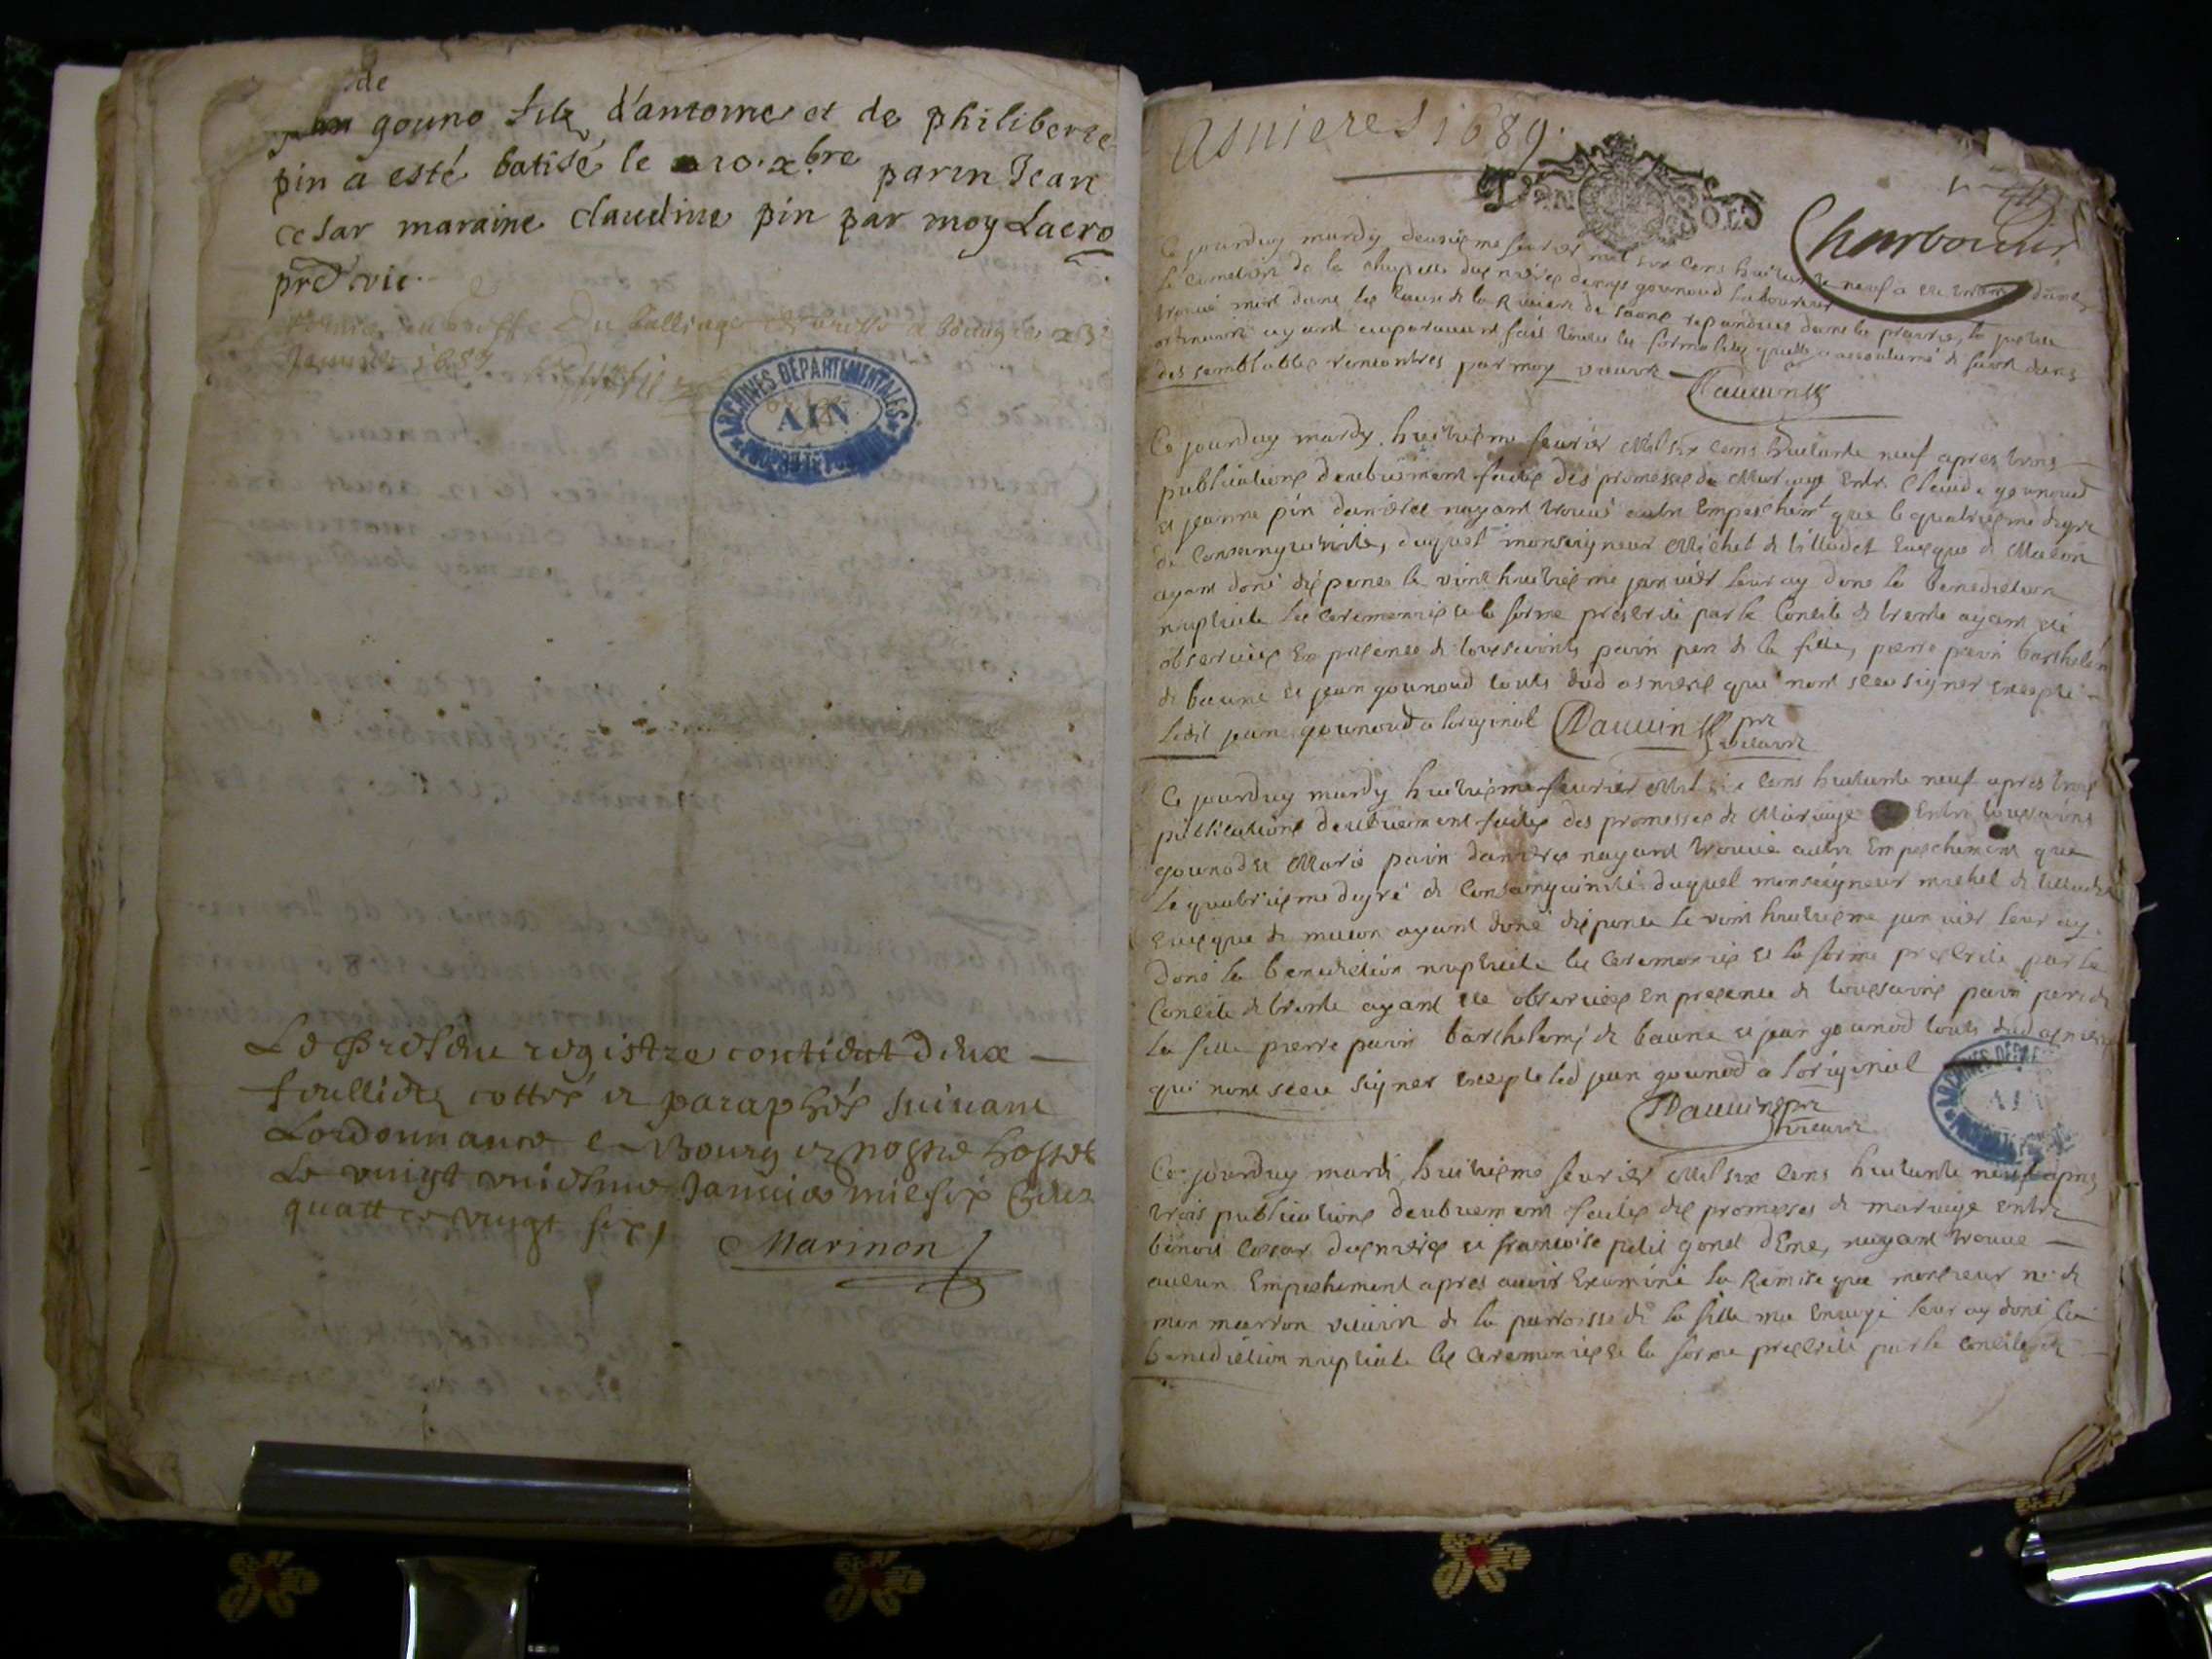 de
gouno filz d'antoine et de philiberte
pin a esté batisé le 10. xbre parin Jean
cesar maraine claudine pin par moy Lacro
pre vic.
Janvier 1689
ARCHIVES DEPARTEMENTALES
AIN
Le present registre contient deux
foeullietz cottés et paraphés suivant
Lordonnance a Bourg en nostre hostel
Le vingt janvier mil six cens
quattre vingt six
Marinon
Asnieres 1689.
Charbonnier
Ce jourduy mardy deuxiesme fevrier mil six cens huitante neuf a esté enterré dans
le cimetiere de la chapelle dasnieres denys gounoud laboureur
trouvé mort dans les eaux de la Riviere de saone repandues dans la prairie, la justice
ayant auparavant fait toutes les formalités quelle a accoutumé de faire dans
des semblables rencontres par moy vicaire
Dauvin
Ce jourduy mardy huitiesme fevrier Mil six cens huitante neuf apres trois
publications deubuement faites des promesses de Mariage Entre Claude gounoud
et jeanne pin dasnieres nayant trouvé autre Empeschemt que le quatriesme degré
de Consanguinité, duquel monseigneur Michel de tilladet Evesque de Macon
ayant doné dispence le vint huitiesme janvier leur ay doné la benediction
nuptiale les ceremonies et la forme prescrite par le Concile de trente ayant eté
observées En presence de toussaints pavin pere de la fille, pierre pavin barthelemi
de baune et jean gounoud touts dud asnieres qui nont sceu signer excepté
ledit jean gounoud a loriginal Dauvin pre
vicaire
Ce jourduy mardy huitiesme fevrier Mil six cens huitante neuf apres trois
publications deubuement faites des promesses de Mariage Entre toussaints
gounod et Marie pavin dasnieres nayant trouvé autre Empeschement que
le quatriesme degré de Consanguinité duquel monseigneur michel de tilladet
Evesque de macon ayant doné dispence le vint huitiesme janvier leur ay
doné la benediction nuptiale les ceremonies et la forme prescrite par le
Concile de trente ayant eté observées En presence de toussains pavin pere de
la fille pierre pavin barthelemi de baune et jean gounod touts dud asnieres
qui nont sceu signer excepté led jean gounod a loriginal
Dauvin pre
vicaire
Ce jourduy mardi huitiesme fevrier Mil six cens huitante neuf apres
trois publications deubuement faites des promesses de mariage entre
benoit Cesar dasnieres et francoise petit gonet nayant trouvé
aucun Empeschement apres avoir Examiné la Remise que monsieur
vicaire de la parroisse de la fille ma envoyé leur ay doné la
benediction nuptiale les ceremonies et la forme prescrite par le concile de